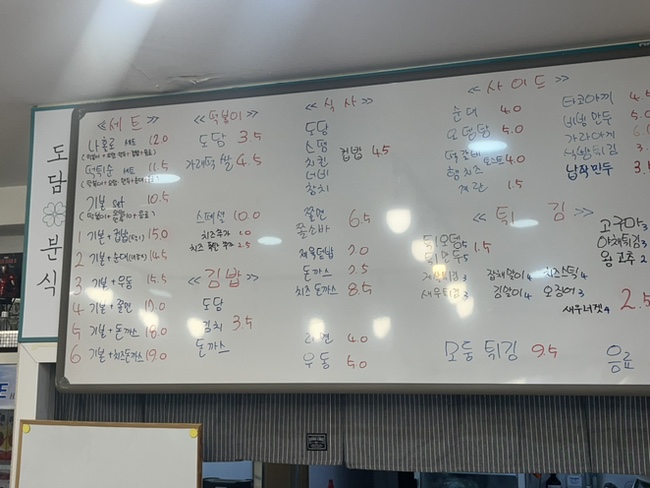 도담분식
≪세트≫
나홀로 세트 12.0
떡튀순 세트 11.5
기본 set 10.5
1 기본+컵밥 15.0
2 기본+순대 14.5
3 기본+우동 15.5
4 기본+쫄면 17.0
5 기본+돈까스 18.0
6 기본+치즈돈까스 19.0
≪떡볶이≫
도담 3.5
가래떡 쌀 4.5
스페셜 10.0
치즈추가 1.0
치즈 폭탄 추가 2.5
≪김밥≫
도담
김치 3.5
돈까스
≪식사≫
도담
스팸
치킨 컵밥 4.5
너비
참치
쫄면 6.5
쫄소바
제육덮밥 7.0
돈까스 7.5
치즈 돈까스 8.5
라면 4.0
우동 5.0
≪사이드≫
순대 4.0
오뎅탕 5.0
떡갈비
핫치즈 4.0
계란 1.5
타코야끼 4.5
비빔만두 5.0
가라아게 6.0
납작만두 3.
≪튀김≫
튀오뎅5 1.5
김말이4 오징어3
잡채말이4 치즈스틱4
새우튀김3
고구마3
야채튀김3
왕고추2
새우너겟4
2.5
모둠튀김 9.5
음료